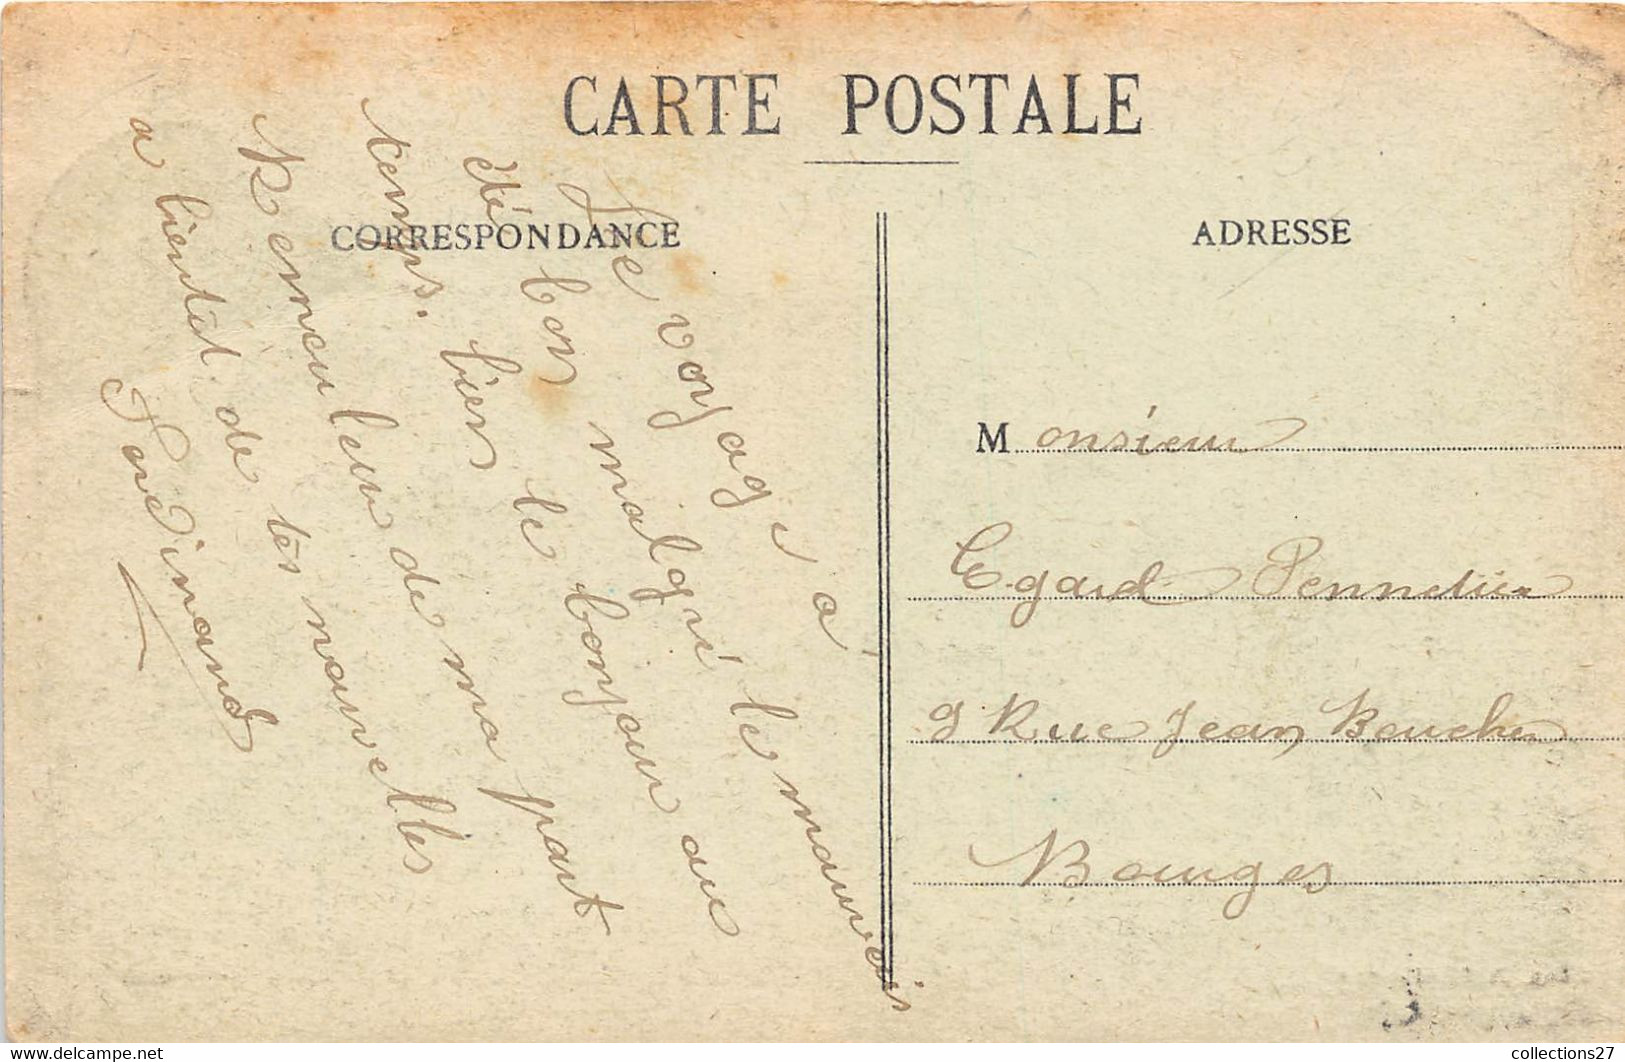 CARTE POSTALE
CORRESPONDANCE
ADRESSE
Le voyage a
été bon malgré le mauvais
temps. bien le bonjour au
de ma part
a bientôt de tes nouvelles
Ferdinand
Monsieur
Egard Pennetier
9 Rue Jean Boucher
Bourges
collections27
www.delcampe.net